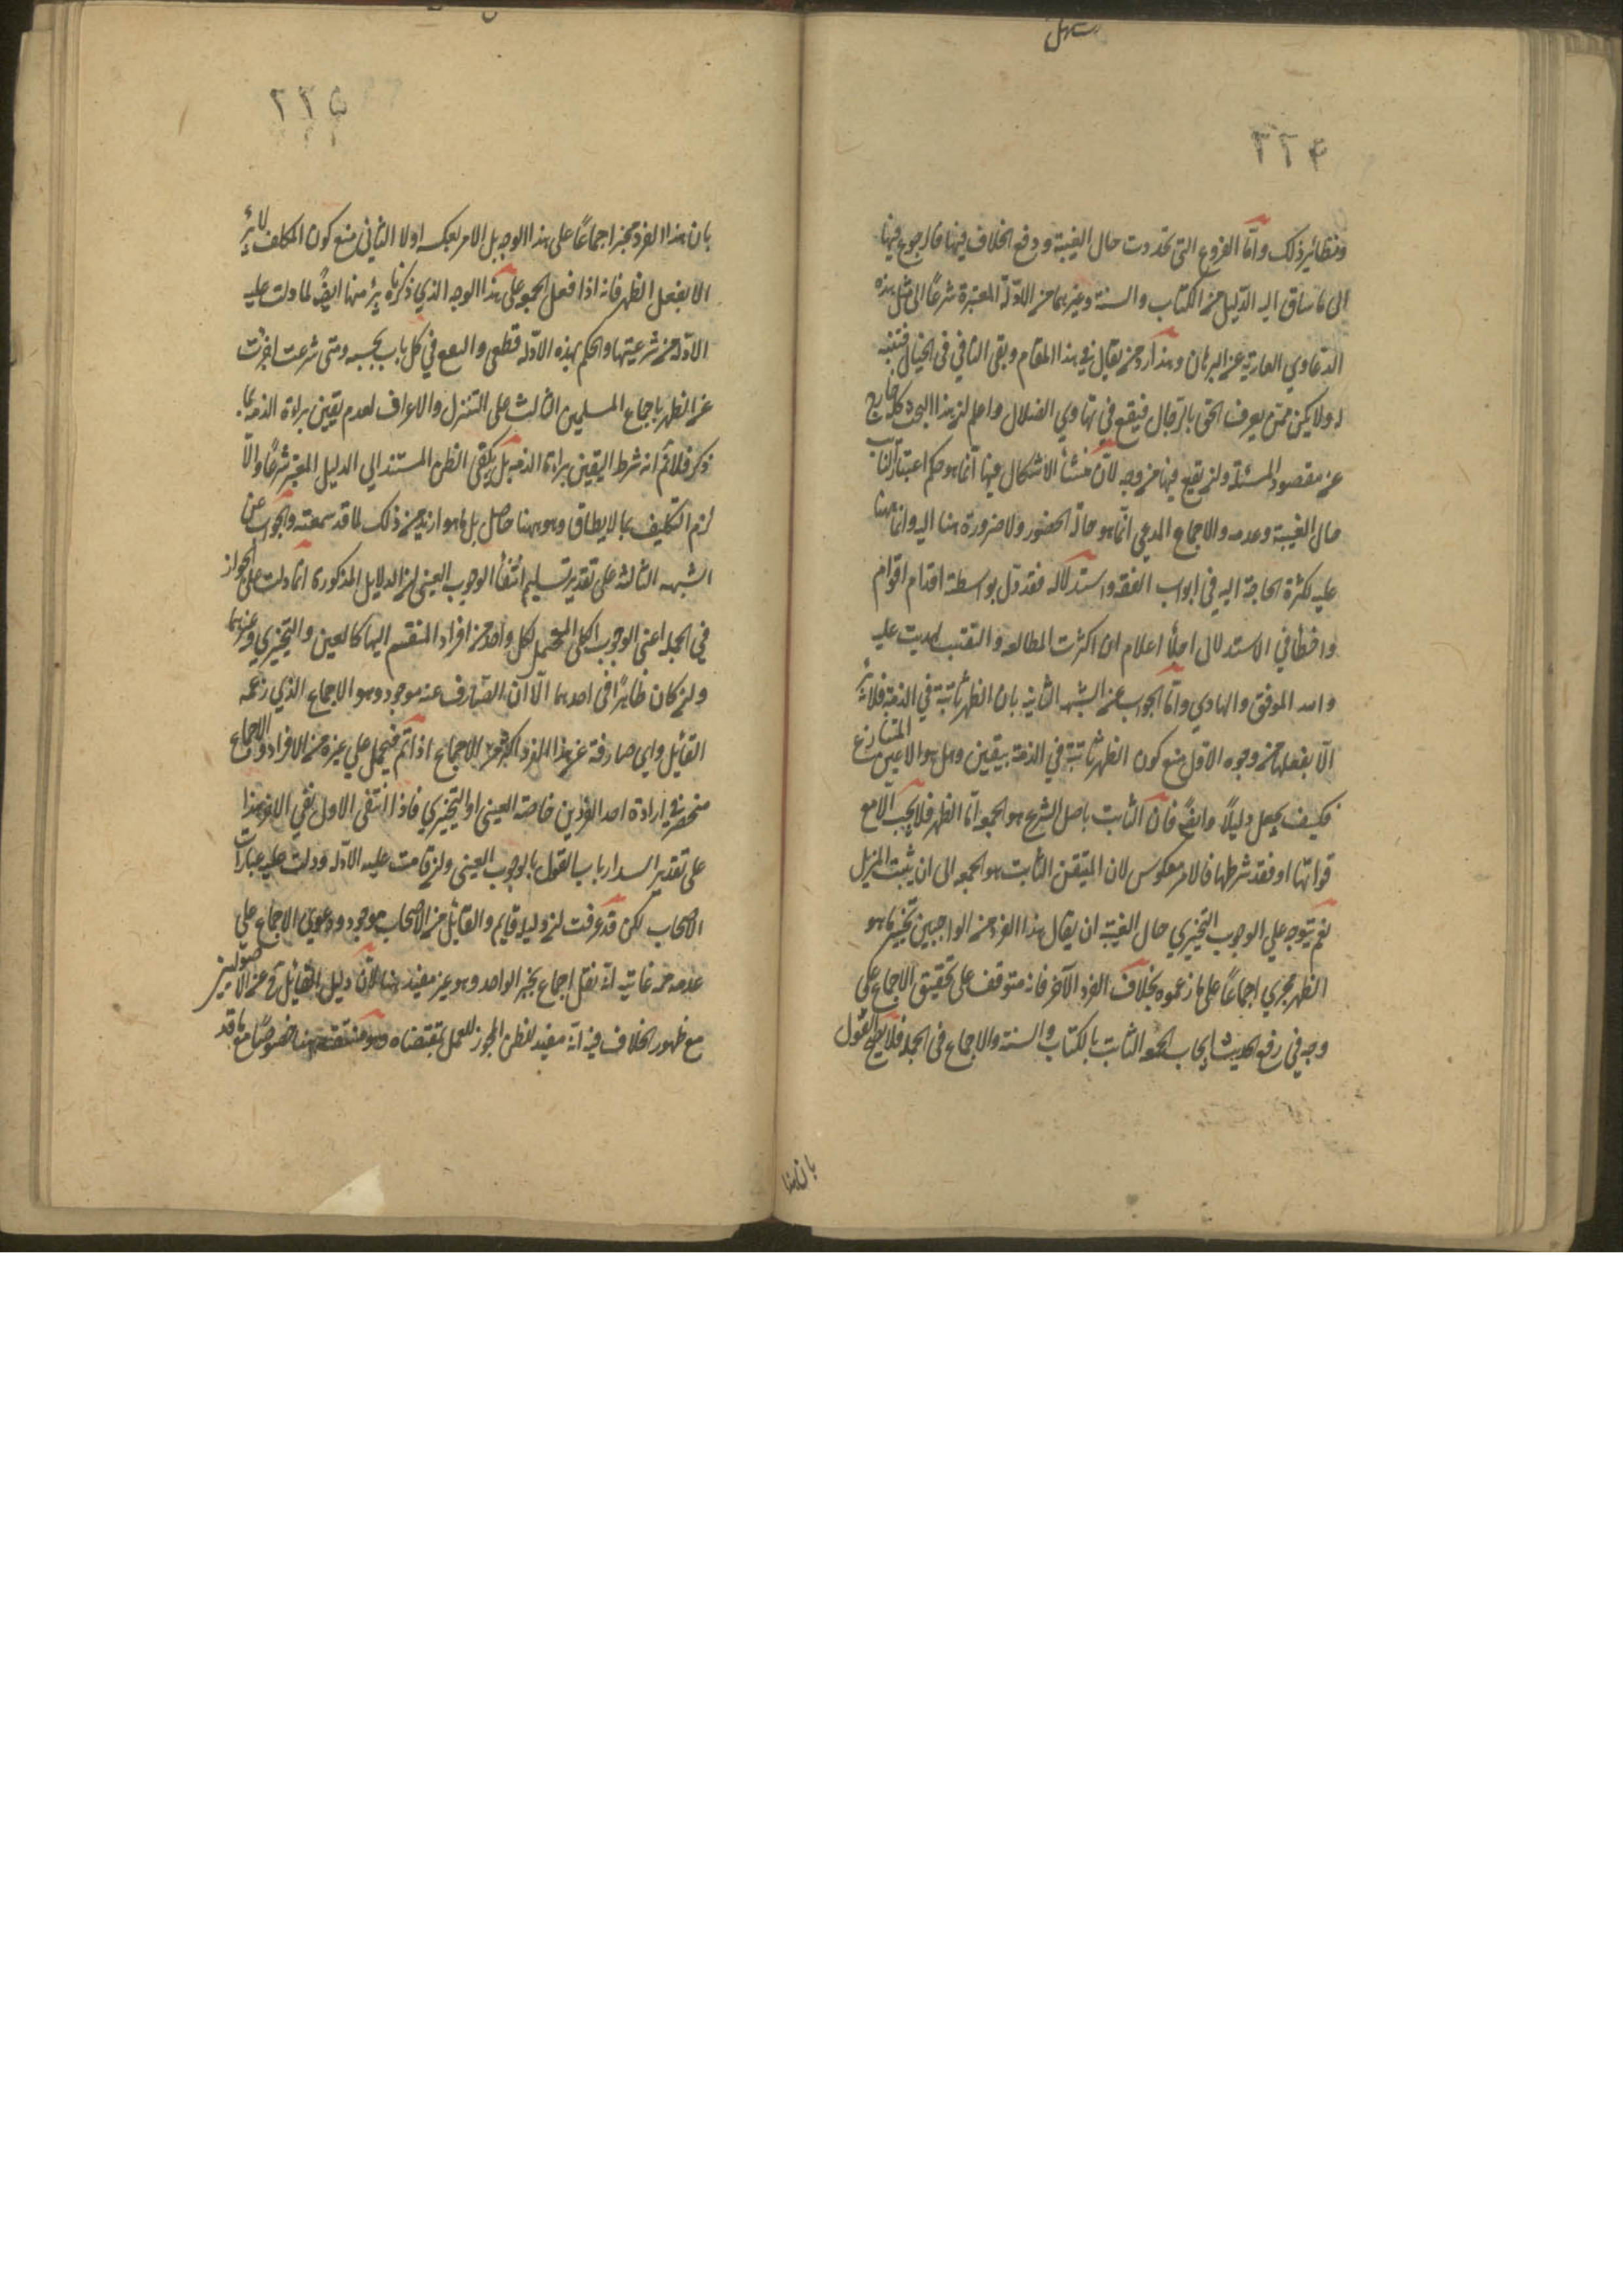 ٢٢٤
ونظائر ذلك وامّا الفروع التى تجددت حال الغيبة ووقع الخلاف فيها فالرجوع فيها
الى ما ساق اليه الدّليل من الكتاب والسنة وغيرهما من الادلّة المعتبرة شرعًا الى مثل هذه
الدعاوي العارية عن البرهان وهذا اردء من يقال في هذا المقام وبقى الباقي فى الخيال فتنبه
له ولا يكن ممّن يعرف الحق بالرّجال فيقع في تهاوي الضلال واعلم ان هذا البحث كله خارج
عن مقصود المسئلة وان يقع فيها من وجه لانّ منشأ الاشكال فيها انّما هو حكم اعتبار النائب
حال الغيبة وعدمه والاجماع المدعى انّما هو حالة الحضور ولا ضرورة هنا اليه وانّما نبهنا
عليه لكثرة الحاجة اليه في ابواب الفقه واستدلاله فقد زل بواسطته اقدام اقوام
واخطأ في الاستدلال اجلّاء اعلام ان اكثرت المطالعه والتقنب لهديت عليه
والله الموفق والهادي وامّا الجواب عن الشبهه الثانيه بان الظهر ثابتة في الذمة فلا يبرئ
الّا بفعلها فمن وجوه الاوّل منع كون الظهر ثابتة في الذمة بيقين وهل هو الا عين المتنازع
فكيف يجعل دليلاً وايضًا فان الثابت باصل الشرع هو الجمعه امّا الظهر فلا يجب الّا مع
فواتها او فقد شرطها فالامر معكوس لان المتيقن الثابت هو الجمعه الى ان يثبت المزيل
نعم يتوجه علي الوجوب التخييري حال الغيبة ان يقال هذا الفرد من الواجبين تخييرًا هو
الظهر مجزي اجماعًا على ما زعموه بخلاف الفرد الآخر فانه متوقف على تحقيق الاجماع على
وجه في رفع الحديث ايجاب الجمعه الثابت بالكتاب والسنة والاجماع فى الجملة فلا يصح القول
بان هذا
٢٢٥
بان هذا الفرد مجز اجماعًا على هذا الوجه بل الامر بعكسه اولا الثاني منع كون المكلف لا يبرئ
الا بفعل الظهر فانه اذا فعل الجمعه على هذا الوجه الذي ذكرناه برئ منها ايضًا لما دلت عليه
الادّلة من شرعيتها والحكم بهذه الادّلة قطعى والتعبع في كل باب بحسبه ومتى شرعت اجزئت
عن الظهر باجماع المسلمين الثالث على التنزل والاعراف لعدم يقين براءة الذمه بما
ذكر فلا نمّ انه شرط اليقين براءة الذمه بل يكتفى الظن المستند الي الدليل المعتبر شرعًا والّا
لزم التكليف بما لا يطاق وهو هنا حاصل بل ما هو ازيد من ذلك لما قد سمعته والجواب عن
الشبهه الثالثه على تقدير تسليم انتفاء الوجوب العينى ان الدلايل المذكورة انّما دلت على الجواز
في الجملة اعنى الوجوب الكلى المحتمل لكل واحد من افراد المنقسم اليها كالعين والتخييري وغيرهما
وان كان ظاهرًا فى احدهما الّا انّ الصّارف عنه موجود وهو الاجماع الذي زعمه
القائل واي صارفة عن هذا الفرد اكثر من الاجماع اذا تمّ فيحمل على غيره من الافراد والاجماع
منحصر في ارادة احد الفردين خاصة العينى او التخييري فاذا انتفى الاول بقي الاخر هذا
على تقدير انسداد باب القول بالوجوب العينى وان قامت عليه الادّله ودلت عليه عبارات
الاصحاب لكن قد عرفت ان دليله قايم والقائل من الاصحاب موجود ودعوى الاجماع على
عدمه من غايته انّه نقل اجماع بخبر الواحد وهو غير مفيد هنا لانّ دليل القائل به من الاصوليين
مع ظهور الخلاف فيه انّه مفيد للظن المجوز للعمل بمقتضاه وهو منتف هنا خصوصًا مع ما قد